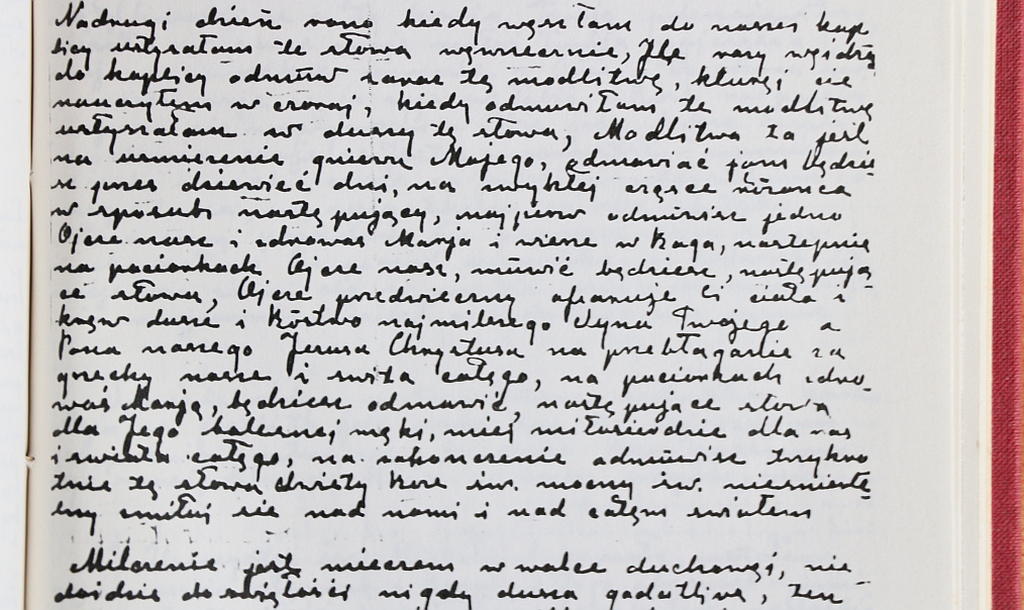 Na drugi dzień rano kiedy weszłam do naszej kap
licy usłyszałam te słowa wewnecznie, Ile razy wejdzie
do kaplicy odmów zaraz tę modlitwę, której cie
nauczyłem wczoraj, kiedy odmuwiłam tę modlitwę
usłyszałam w duszy te słowa, Modlitwa ta jest
na usmierzenie gniewu Mojego, odmawiać ją będzie
sz przez dziewieć dni, na zwykłej cząsce różanca
w sposub następujący, najpierw odmówisz jedno
Ojcze nasz i zdrowaś Marja i wierze w Boga, nastepnie
na paciorkach Ojcze nasz, muwić będziesz, następują
ce słowa, Ojcze przedwieczny ofiaruje Ci ciało i
krew dusze i Bóstwo najmilszego Syna Twojego a
Pana naszego Jezusa Chrystusa na przebłaganie za
grzechy nasze i świta całego, na paciorkach zdro
waś Marja, będziesz odmawić, następujące słowa
dla Jego bolesnej męki, miej miłosierdzie dla nas
i swiata całego, na zakonczenie odmówisz trzykro
tnie te słowa święty Boze św. mocny św. niesmierte
lny zmiłuj sie nad nami i nad całem swiatem
Milczenie jest mieczem w walce duchowej, nie
dojdzie do swiętości nigdy dusza gadatliwa, ten